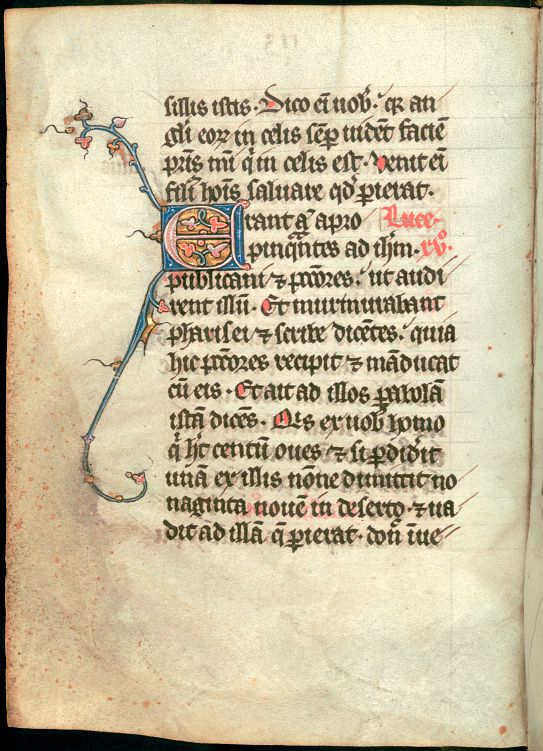 sillis istis. Dico eī uob̄. qꝛ an
gli eoꝝ in celis semꝑ uidēt faciē
pr̄is mī q̇ in celis est. Venit eī
fili hoīs saluare qd̓ ꝑierat.
Erant gͣ apro Luce.
pinq̄ntes ad ih̄m. xvͦ.
publicani ⁊ pcc̄ores. ut audi
rent illū. Et murmurabant
pharisei ⁊ scribe dicētes. quia
hic pcc̄ores recipit ⁊ māducat
cū eis. Et ait ad illos ꝑabolā
istā dicēs. Qͥs ex uob̄ homo
qͥ ht̄ centū oues ⁊ si ꝑdid̓it
unā ex illis nōne dimittit no
naginta nouē in deserto. ⁊ ua
dit ad illā q̄ ꝑierat. don̄ īue